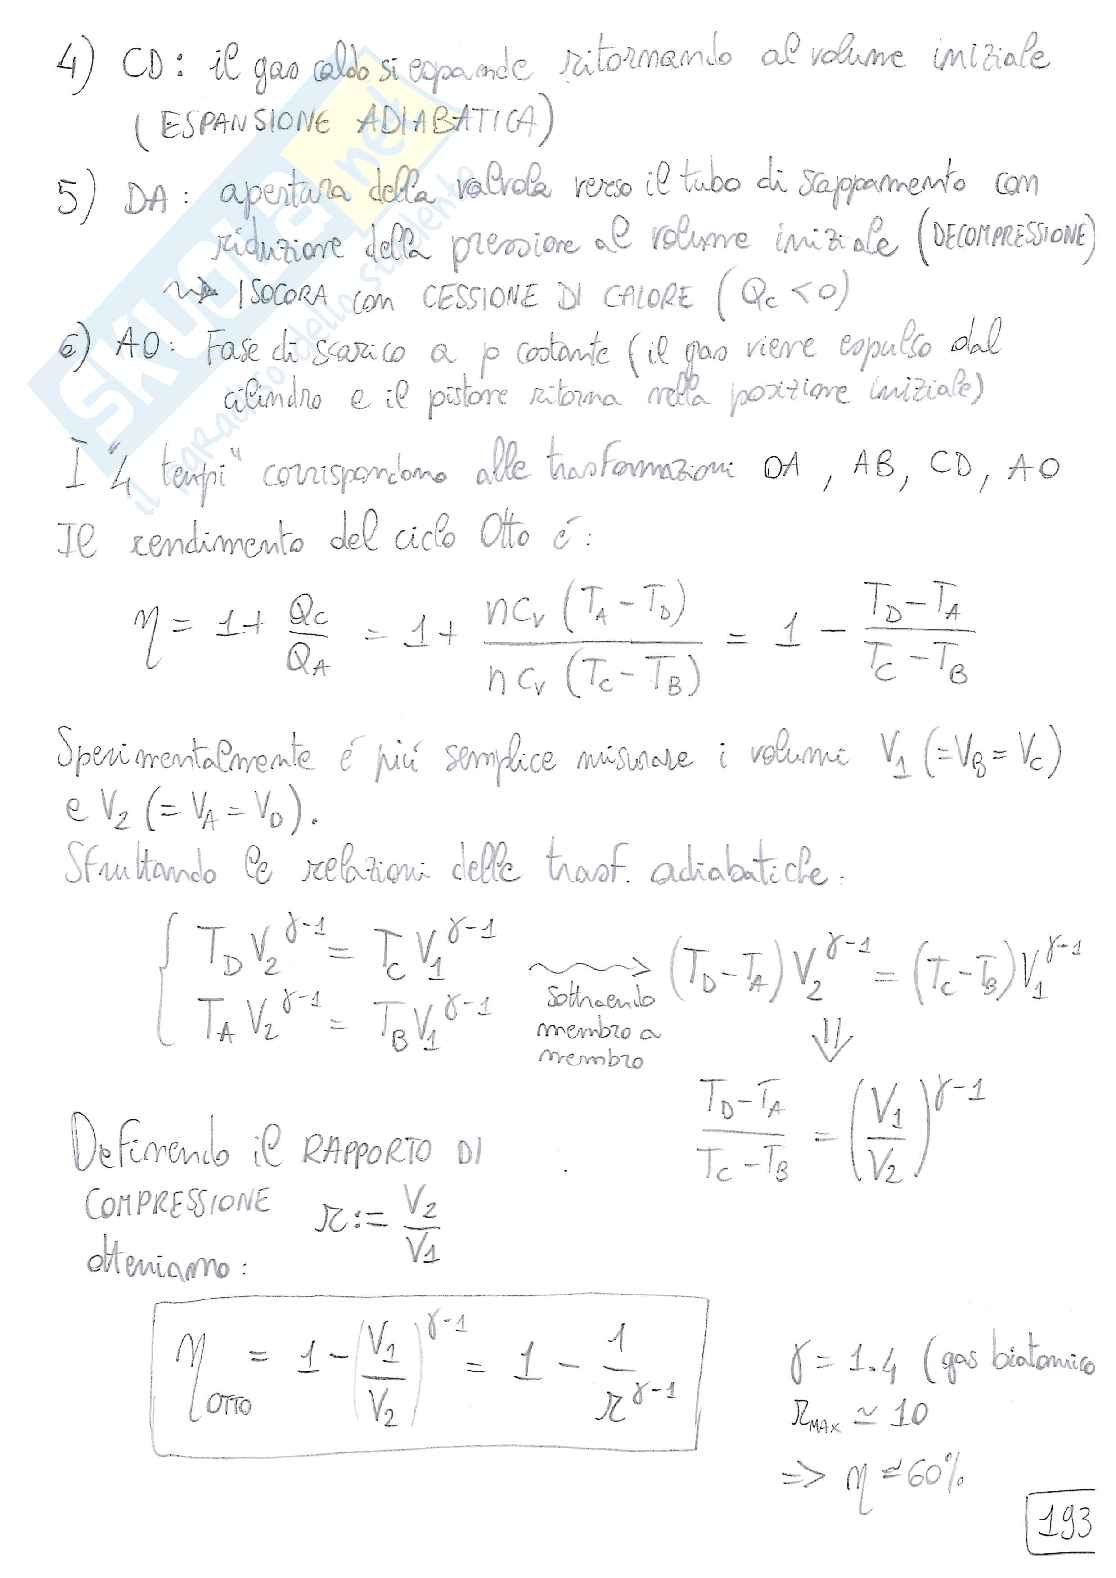 4) CD: il gas caldo si espande ritornando al volume iniziale
(ESPANSIONE ADIABATICA)
5) DA: apertura della valvola verso il tubo di scappamento con
riduzione della pressione al volume iniziale (DECOMPRESSIONE)
⇝ ISOCORA con CESSIONE DI CALORE (Qc < 0)
6) AO: Fase di scarico a p costante (il gas viene espulso dal
cilindro e il pistone ritorna nella posizione iniziale)
I "4 tempi" corrispondono alle trasformazioni OA, AB, CD, AO
Il rendimento del ciclo Otto é:
η = 1 + Qc/QA = 1 + ncv(TA - TD)/ncv(TC - TB) = 1 - (TD - TA)/(TC - TB)
Sperimentalmente é piú semplice misurare i volumi V1 (=VB = VC)
e V2 (= VA = VD).
Sfruttando le relazioni delle trasf. adiabatiche:
{ TD V2^γ-1 = TC V1^γ-1
TA V2^γ-1 = TB V1^γ-1
sottraendo
membro a
membro
(TD - TA) V2^γ-1 = (TC - TB) V1^γ-1
⇓
(TD - TA)/(TC - TB) = (V1/V2)^γ-1
Definendo il RAPPORTO DI
COMPRESSIONE r := V2/V1
otteniamo:
ηOTTO = 1 - (V1/V2)^γ-1 = 1 - 1/r^γ-1
γ = 1.4 (gas biatomico
rMAX ≃ 10
=> η ≃ 60%
193
SKUOLA.net
il paradiso dello studente